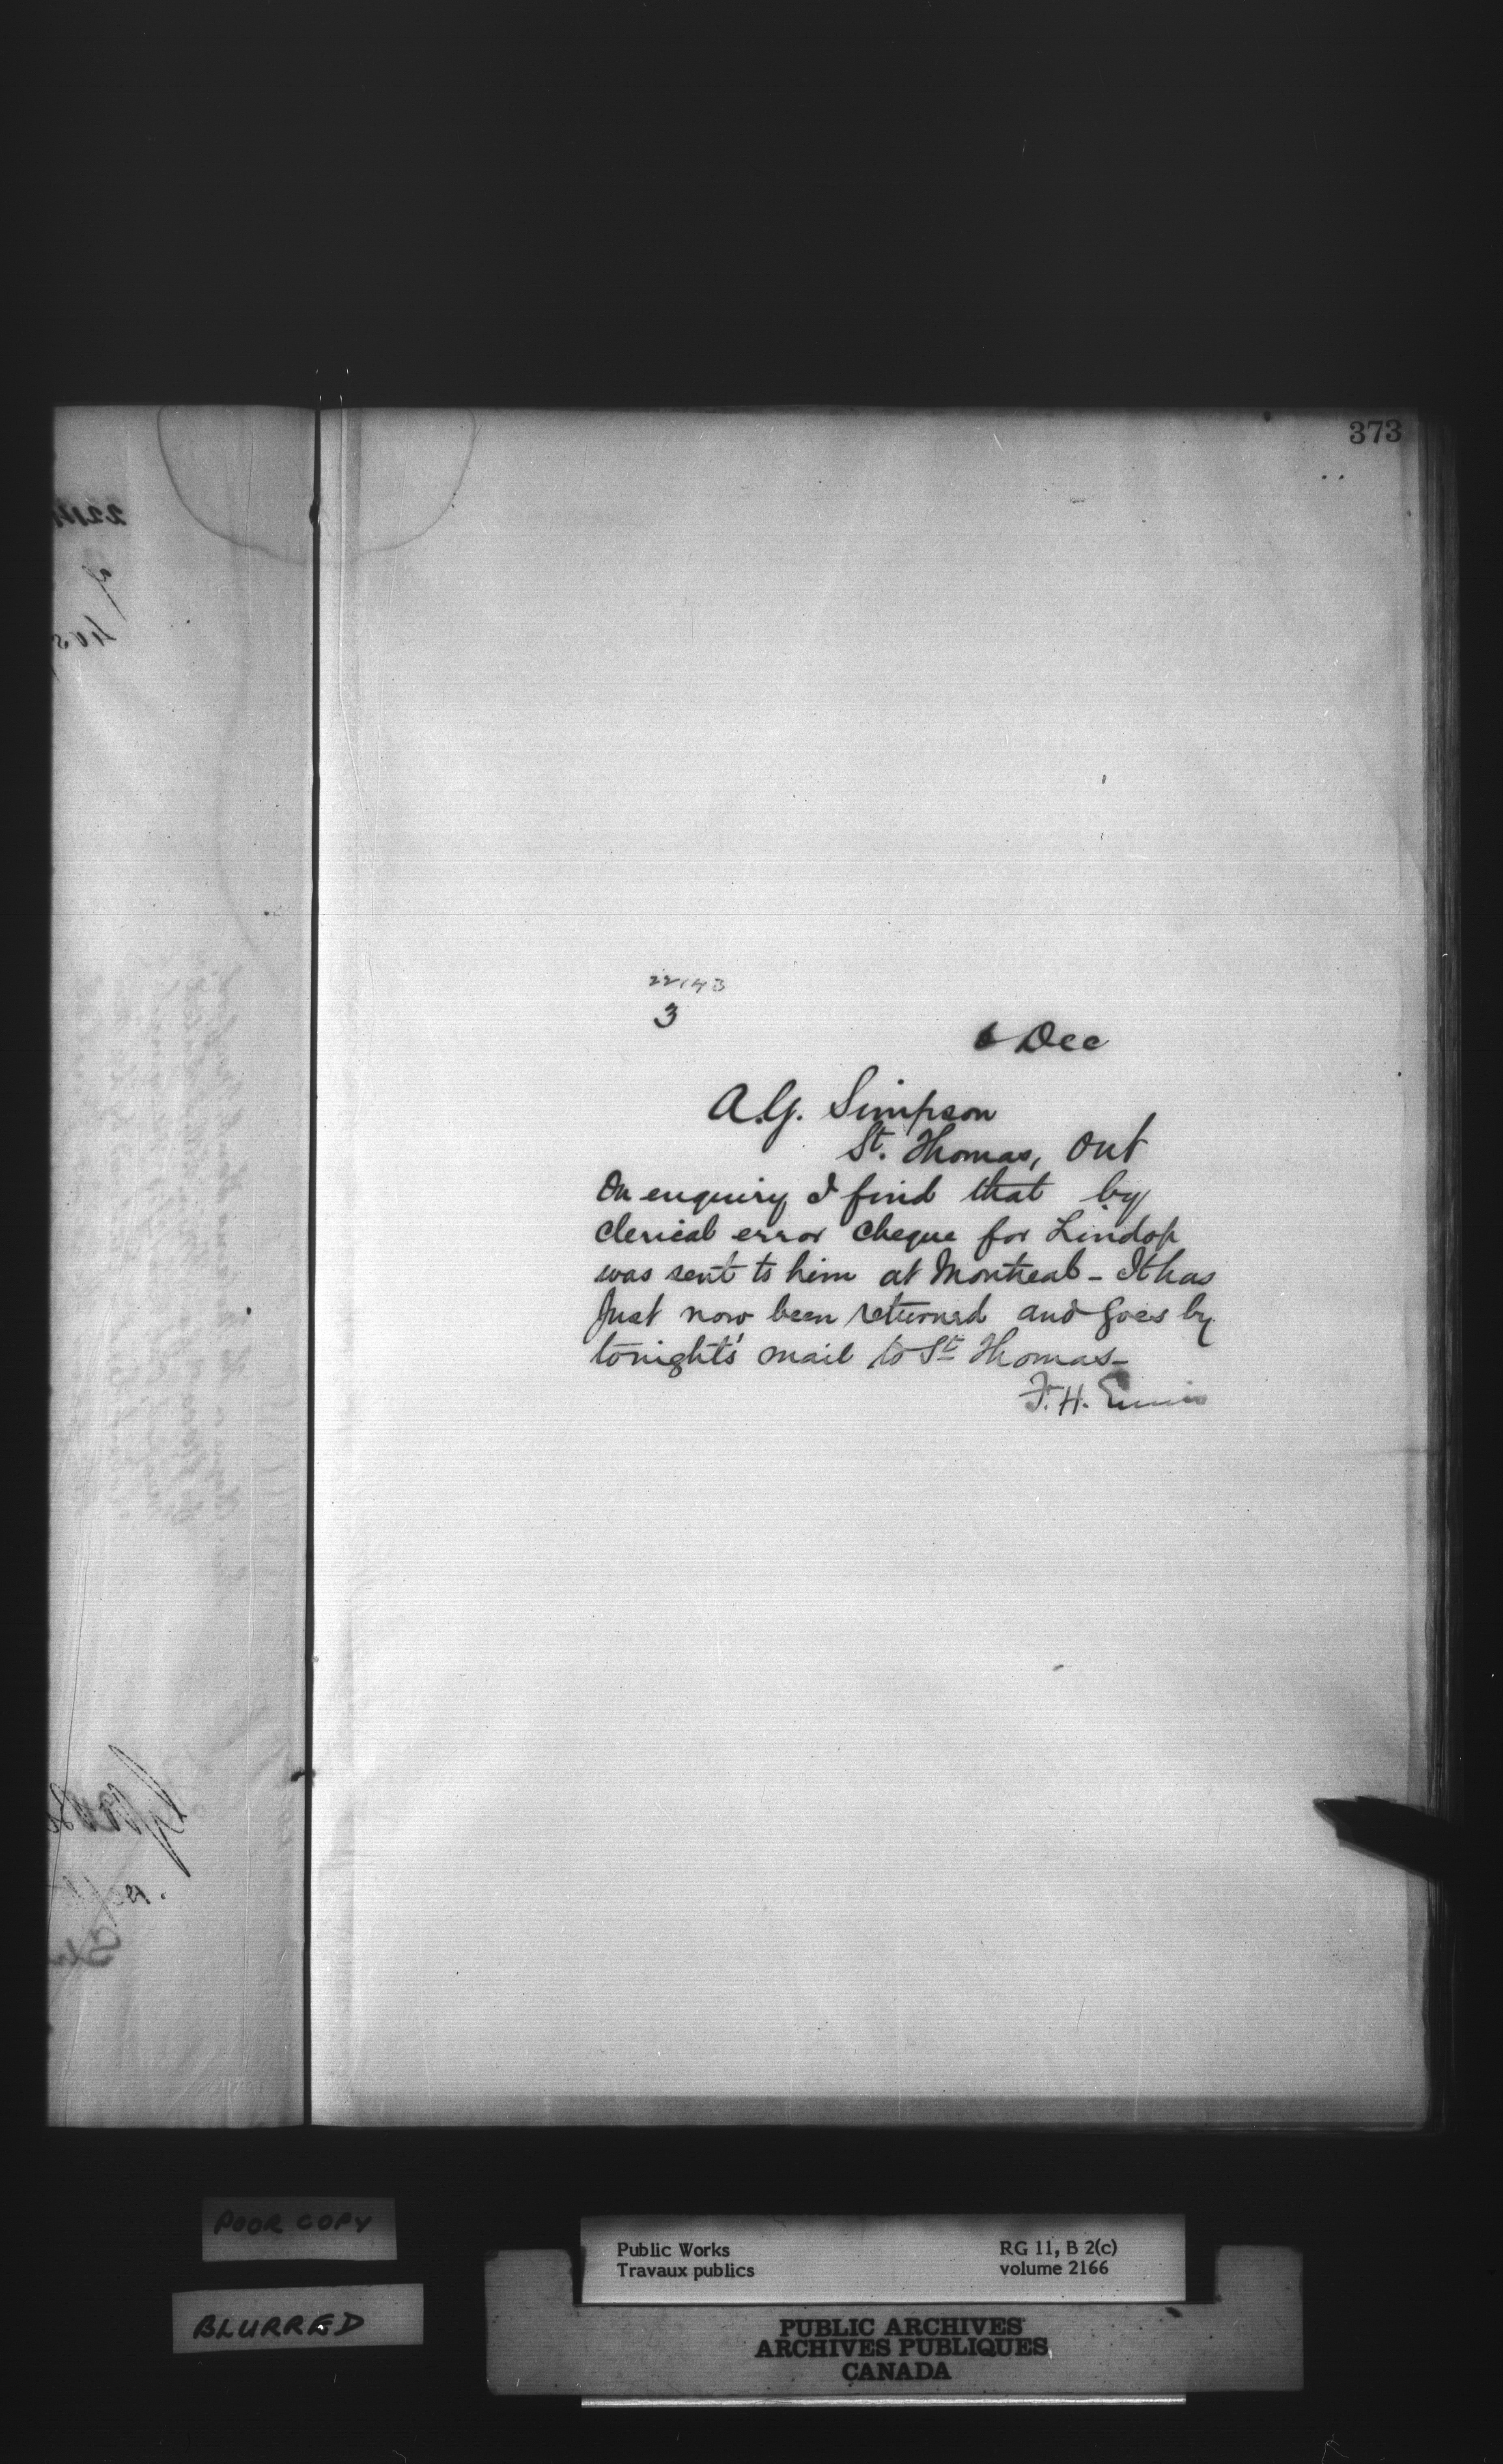 373
22143
3
6 Dec
A.G. Simpson
St. Thomas, Ont
On enquiry I find that by
clerical error cheque for Lindop
was sent to him at Montreal - It has
Just now been returned and goes by
tonight's mail to St Thomas -
F. H. Ennis
POOR COPY
BLURRED
Public Works
Travaux publics
RG 11, B 2(c)
volume 2166
PUBLIC ARCHIVES
ARCHIVES PUBLIQUES
CANADA